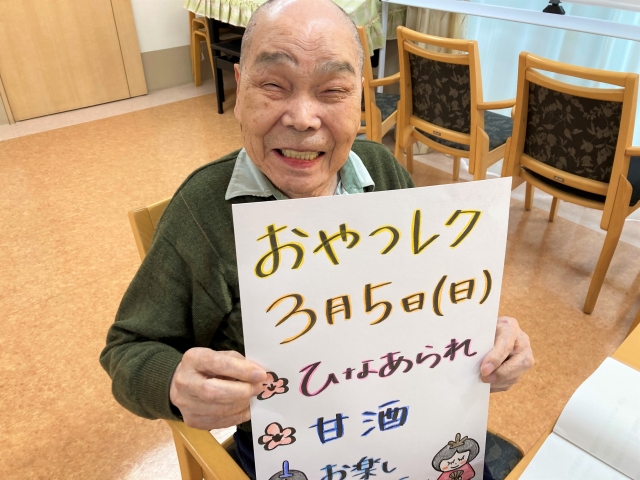 おやつレク
3月5日(日)
ひなあられ
甘酒
お楽し